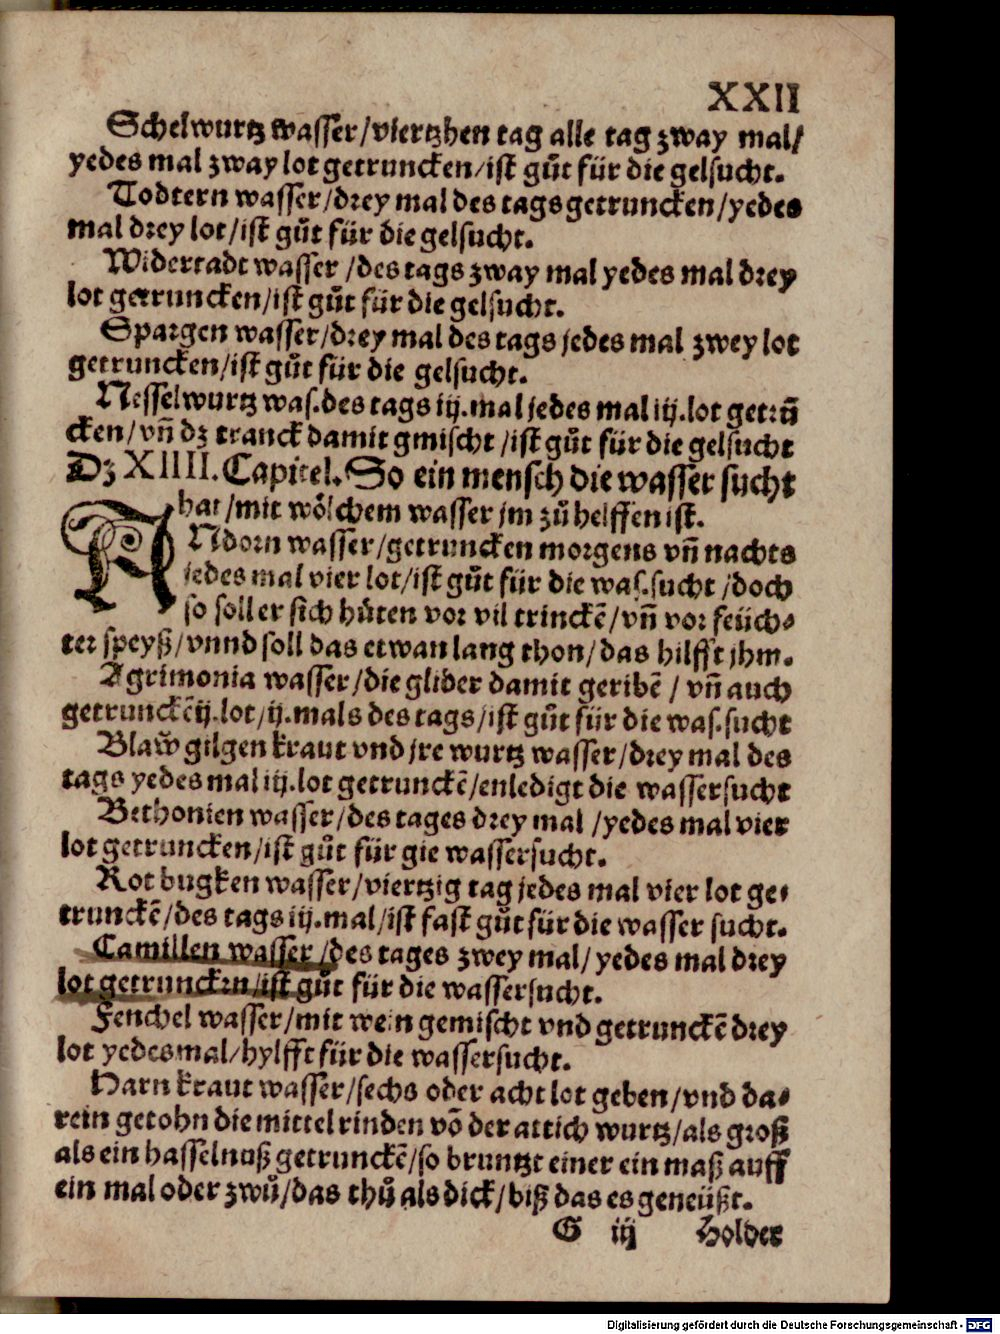 XXII
Schelwurtz wasser/viertzhen tag alle tag zway mal/
yedes mal zway lot getruncken/ist gůt für die gelsucht.
Todtern wasser/drey mal des tags getruncken/yedes
mal drey lot/ist gůt für die gelsucht.
Widertadt wasser/des tags zway mal yedes mal drey
lot getruncken/ist gůt für die gelsucht.
Spargen wasser/drey mal des tags jedes mal zwey lot
getruncken/ist gůt für die gelsucht.
Nesselwurtz was.des tags iij.mal jedes mal iij.lot getrū
cken/vñ dz tranck damit gmischt/ist gůt für die gelsucht
Dz XIIII.Capitel.So ein mensch die wasser sucht
hat/mit wölchem wasser jm zů helffen ist.
ANdorn wasser/getruncken morgens vñ nachts
jedes mal vier lot/ist gůt für die was.sucht/doch
so soll er sich hůten vor vil trinckē/vñ vor feüch-
ter speyß/vnnd soll das etwan lang thon/das hilfft jhm.
Agrimonia wasser/die glider damit geribē/vñ auch
getrunckē ij.lot/ij.mals des tags/ist gůt für die was.sucht
Blaẘ gilgen kraut vnd jre wurtz wasser/drey mal des
tags yedes mal iij.lot getrunckē/enledigt die wassersucht
Bethonien wasser/des tages drey mal/yedes mal vier
lot getruncken/ist gůt für gie wassersucht.
Rot bugken wasser/viertzig tag jedes mal vier lot ge-
trunckē/des tags iij.mal/ist fast gůt für die wasser sucht.
Camillen wasser/des tages zwey mal/yedes mal drey
lot getruncken/ist gůt für die wassersucht.
Fenchel wasser/mit wein gemischt vnd getrunckē drey
lot yedes mal/hylfft für die wassersucht.
Harn kraut wasser/sechs oder acht lot geben/vnd da-
rein getohn die mittel rinden vō der attich wurtz/als groß
als ein hasselnuß getrunckē/so bruntzt einer ein maß auff
ein mal oder zwů/das thů als dick/biß das es geneüßt.
G iij Holder
Digitalisierung gefördert durch die Deutsche Forschungsgemeinschaft - DFG